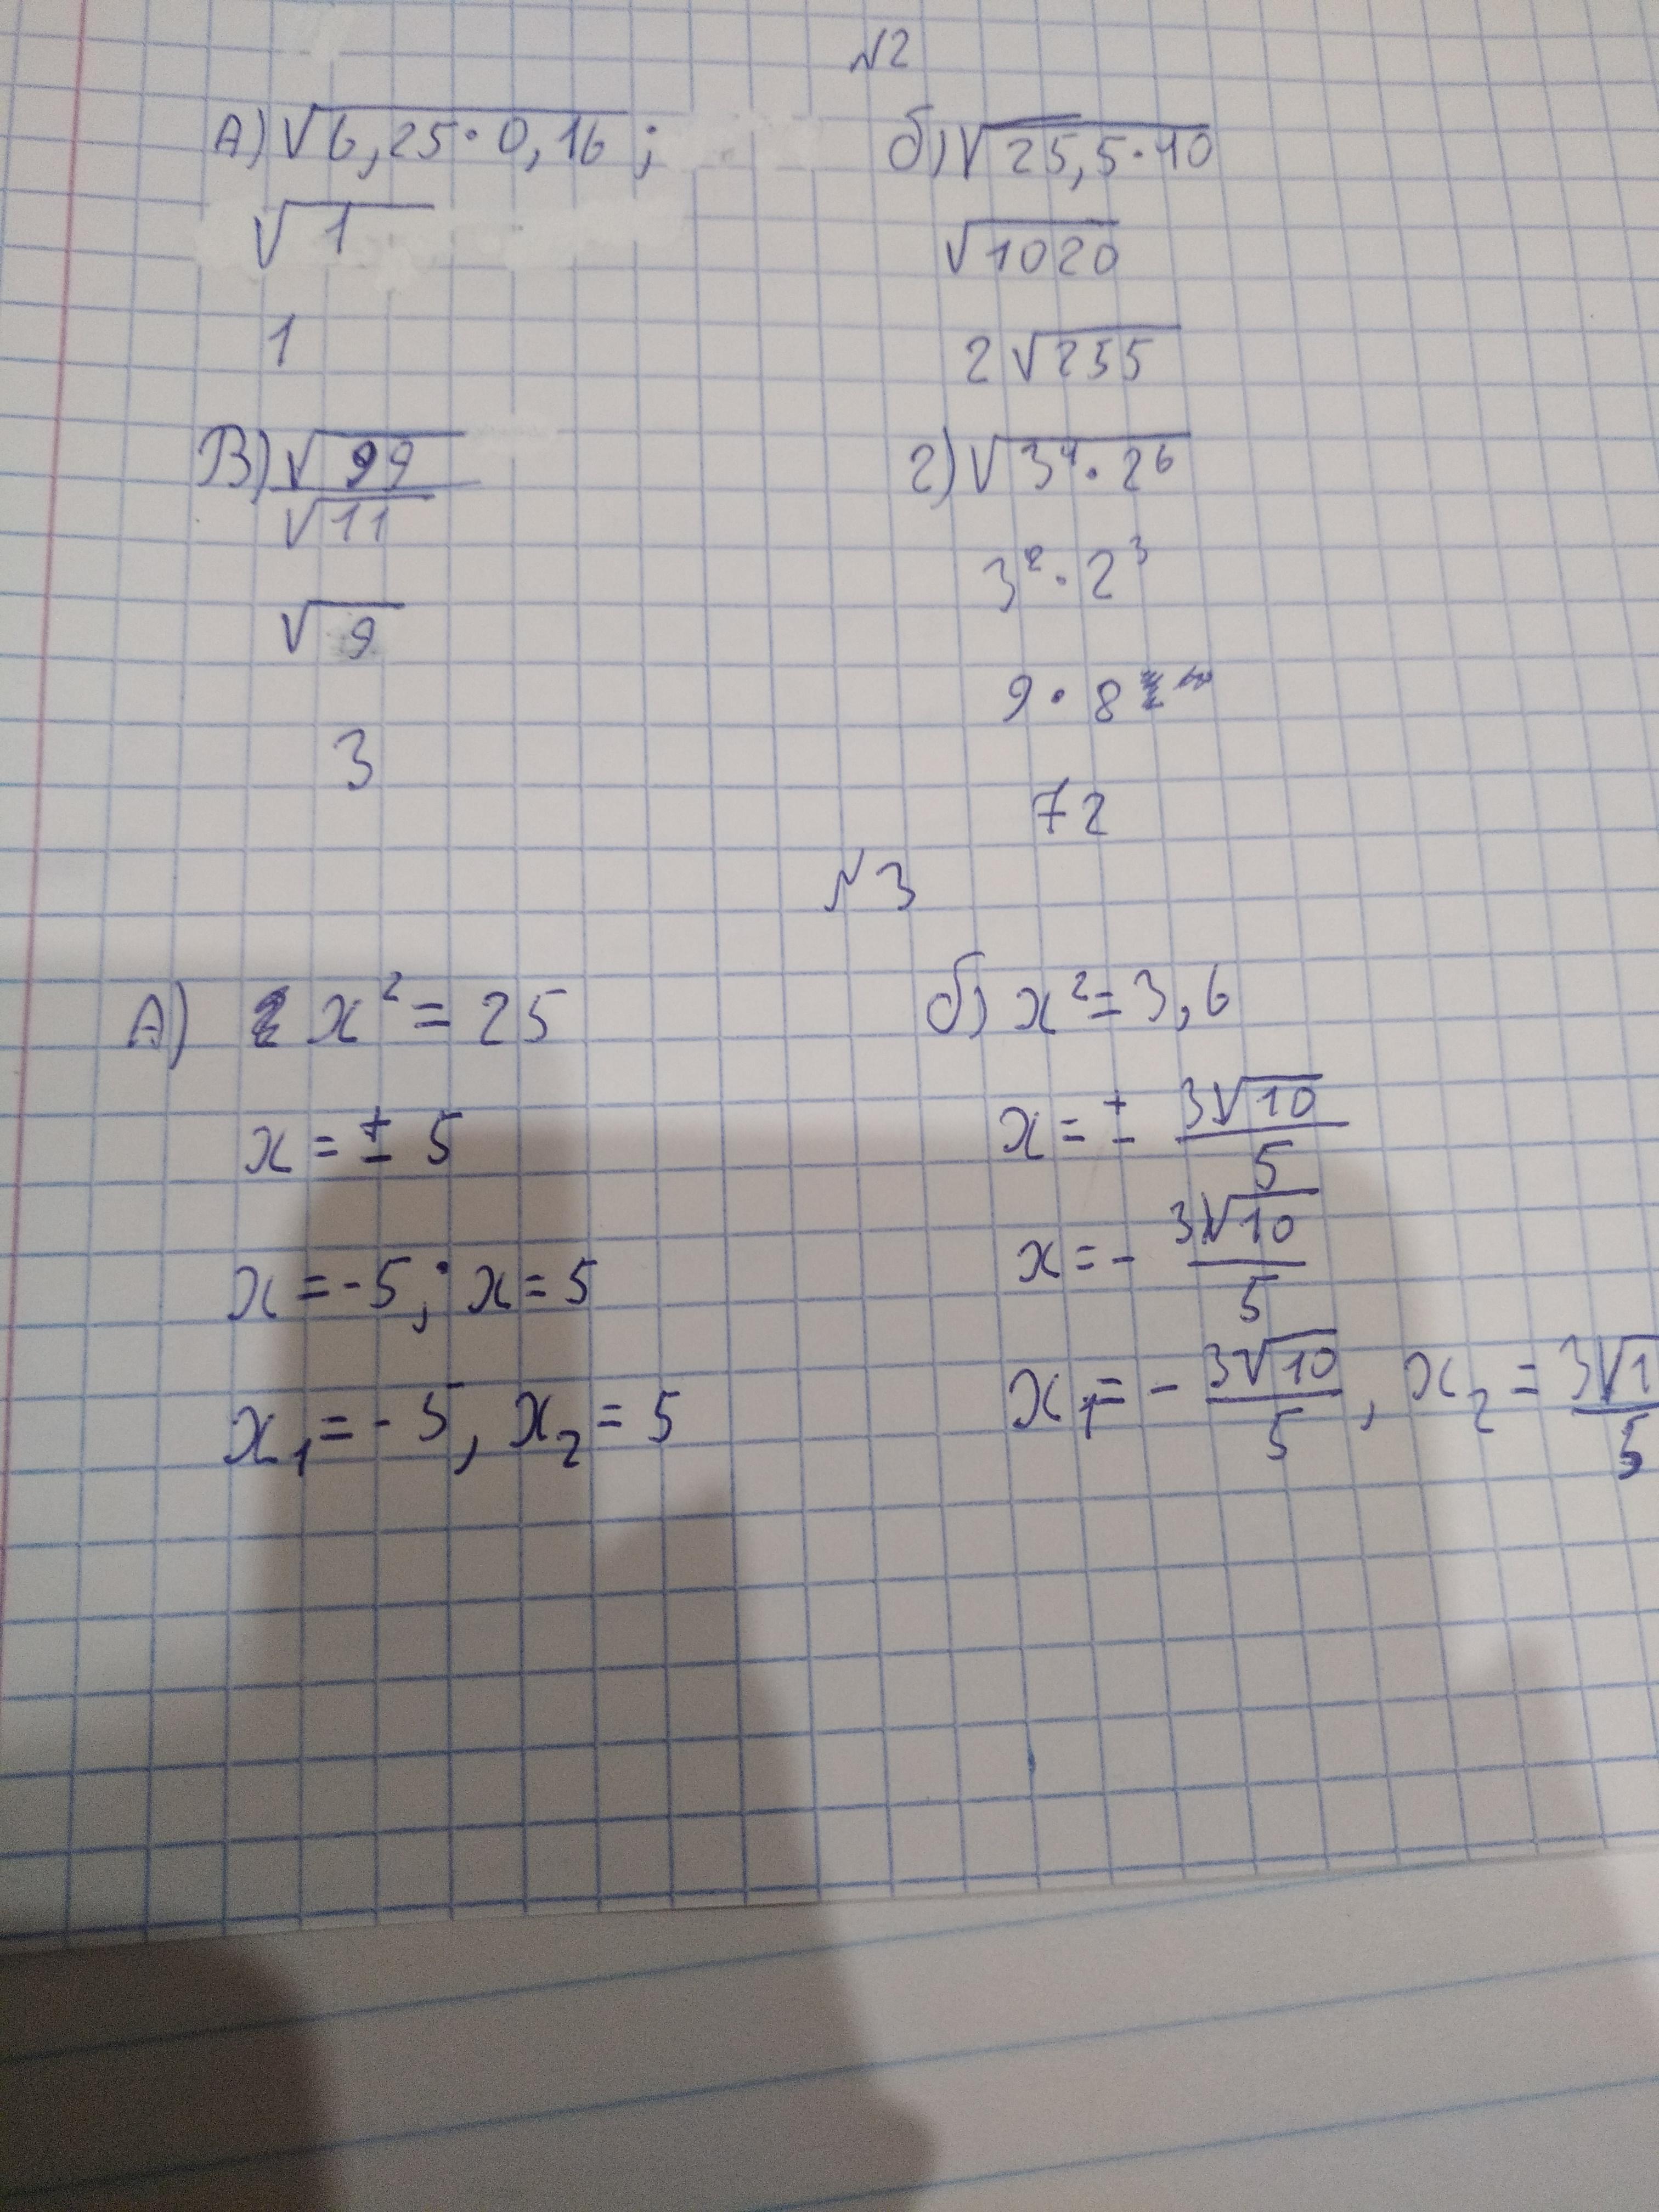 №2
А) √6,25·0,16 ;
√1
1
б) √25,5·40
√1020
2√255
В) √99/√11
√9
3
г) √3⁴·2⁶
3²·2³
9·8
72
№3
А) x²=25
x=±5
x=-5; x=5
x₁=-5, x₂=5
б) x²=3,6
x=± 3√10/5
x=- 3√10/5
x₁=- 3√10/5, x₂= 3√1/5